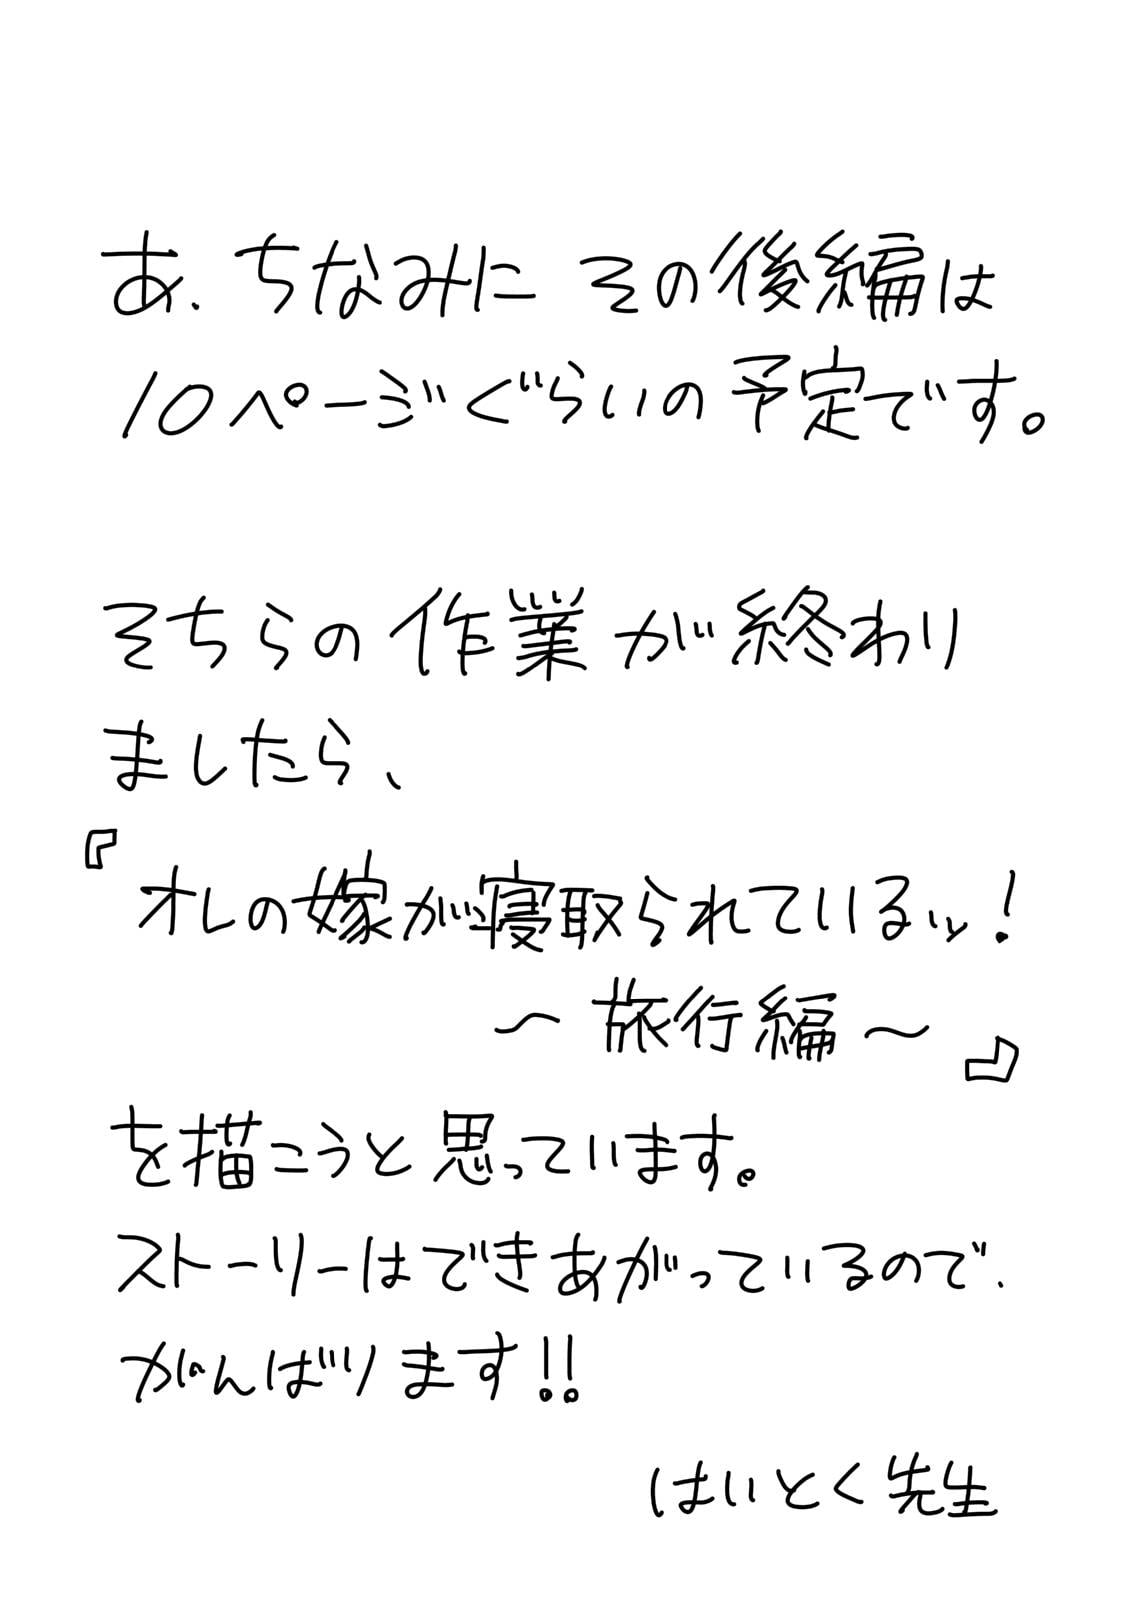 あ、ちなみに その後編は
10ページぐらいの予定です。
そちらの作業が終わり
ましたら、
『オレの嫁が寝取られているッ!
〜旅行編〜』
を描こうと思っています。
ストーリーはできあがっているので、
がんばります!!
はいとく先生